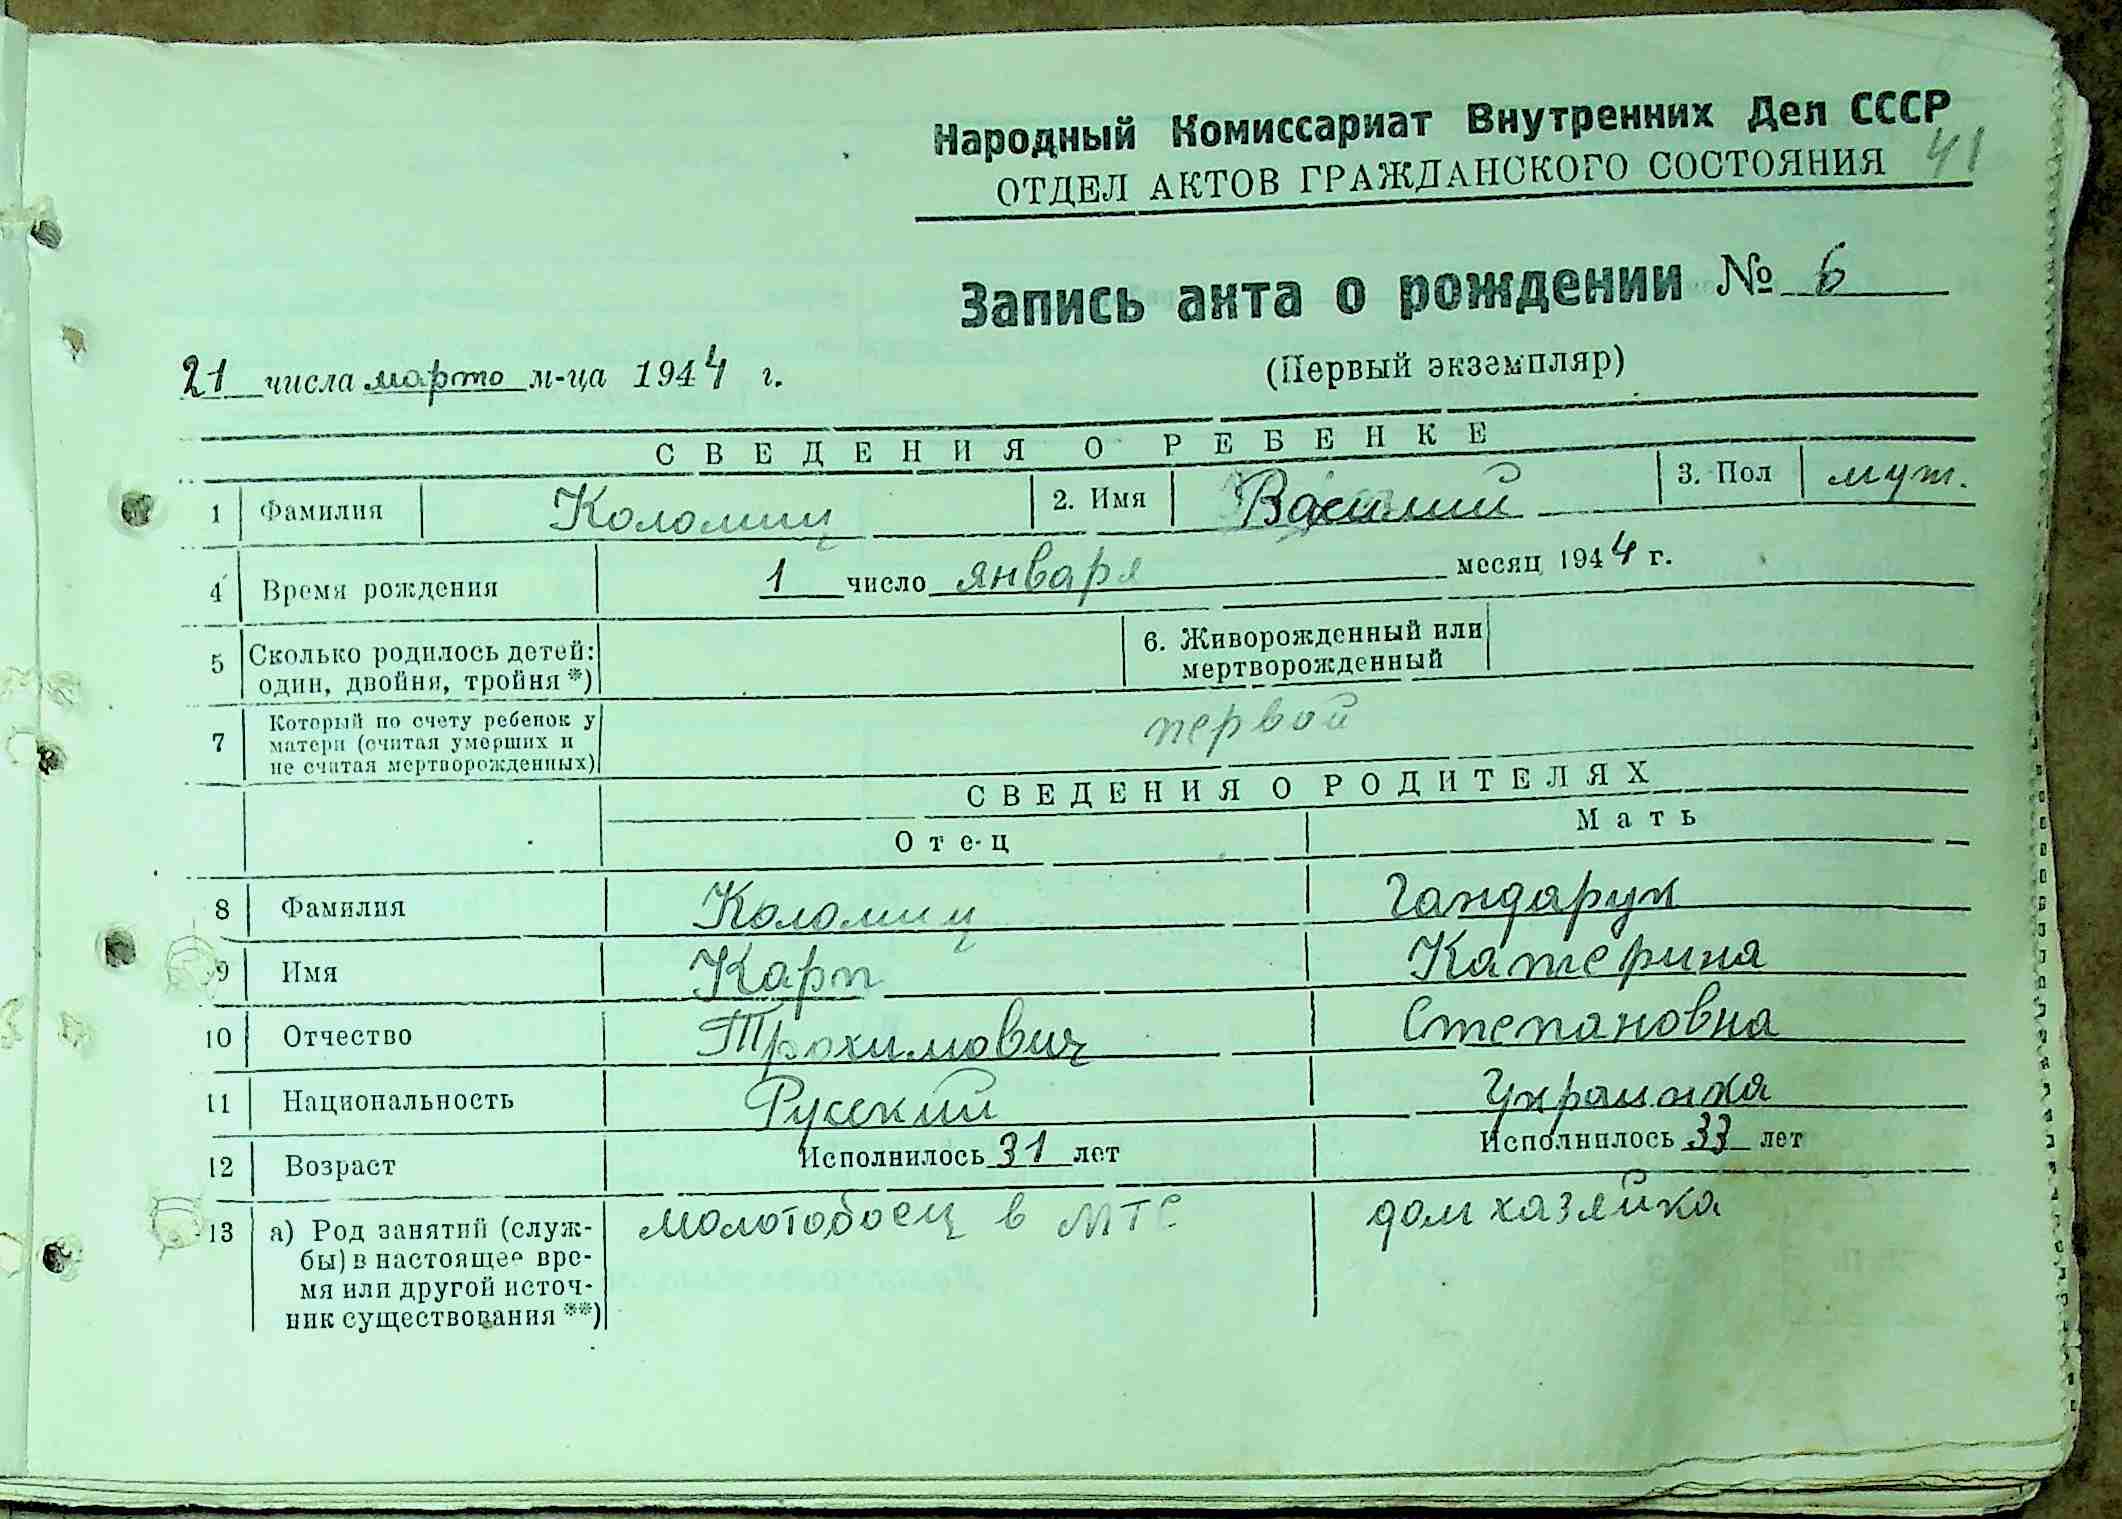 Народный Комиссариат Внутренних Дел СССР
41
ОТДЕЛ АКТОВ ГРАЖДАНСКОГО СОСТОЯНИЯ
Запись акта о рождении № 6
(Первый экземпляр)
21 числа марто м-ца 1944 г.
СВЕДЕНИЯ О РЕБЕНКЕ
1 Фамилия Коломиц 2. Имя Василий 3. Пол муж.
4 Время рождения 1 число января месяц 1944 г.
5 Сколько родилось детей: один, двойня, тройня *)
6. Живорожденный или мертворожденный
7 Который по счету ребенок у матери (считая умерших и не считая мертворожденных) первой
СВЕДЕНИЯ О РОДИТЕЛЯХ
Отец Мать
8 Фамилия Коломиц Гандарук
9 Имя Карп Катерина
10 Отчество Трохимович Степановна
11 Национальность Русский Украинка
12 Возраст Исполнилось 31 лет Исполнилось 33 лет
13 а) Род занятий (служ-
бы) в настоящее вре-
мя или другой источ-
ник существования **)
молотобоец в МТС дом хазяйка